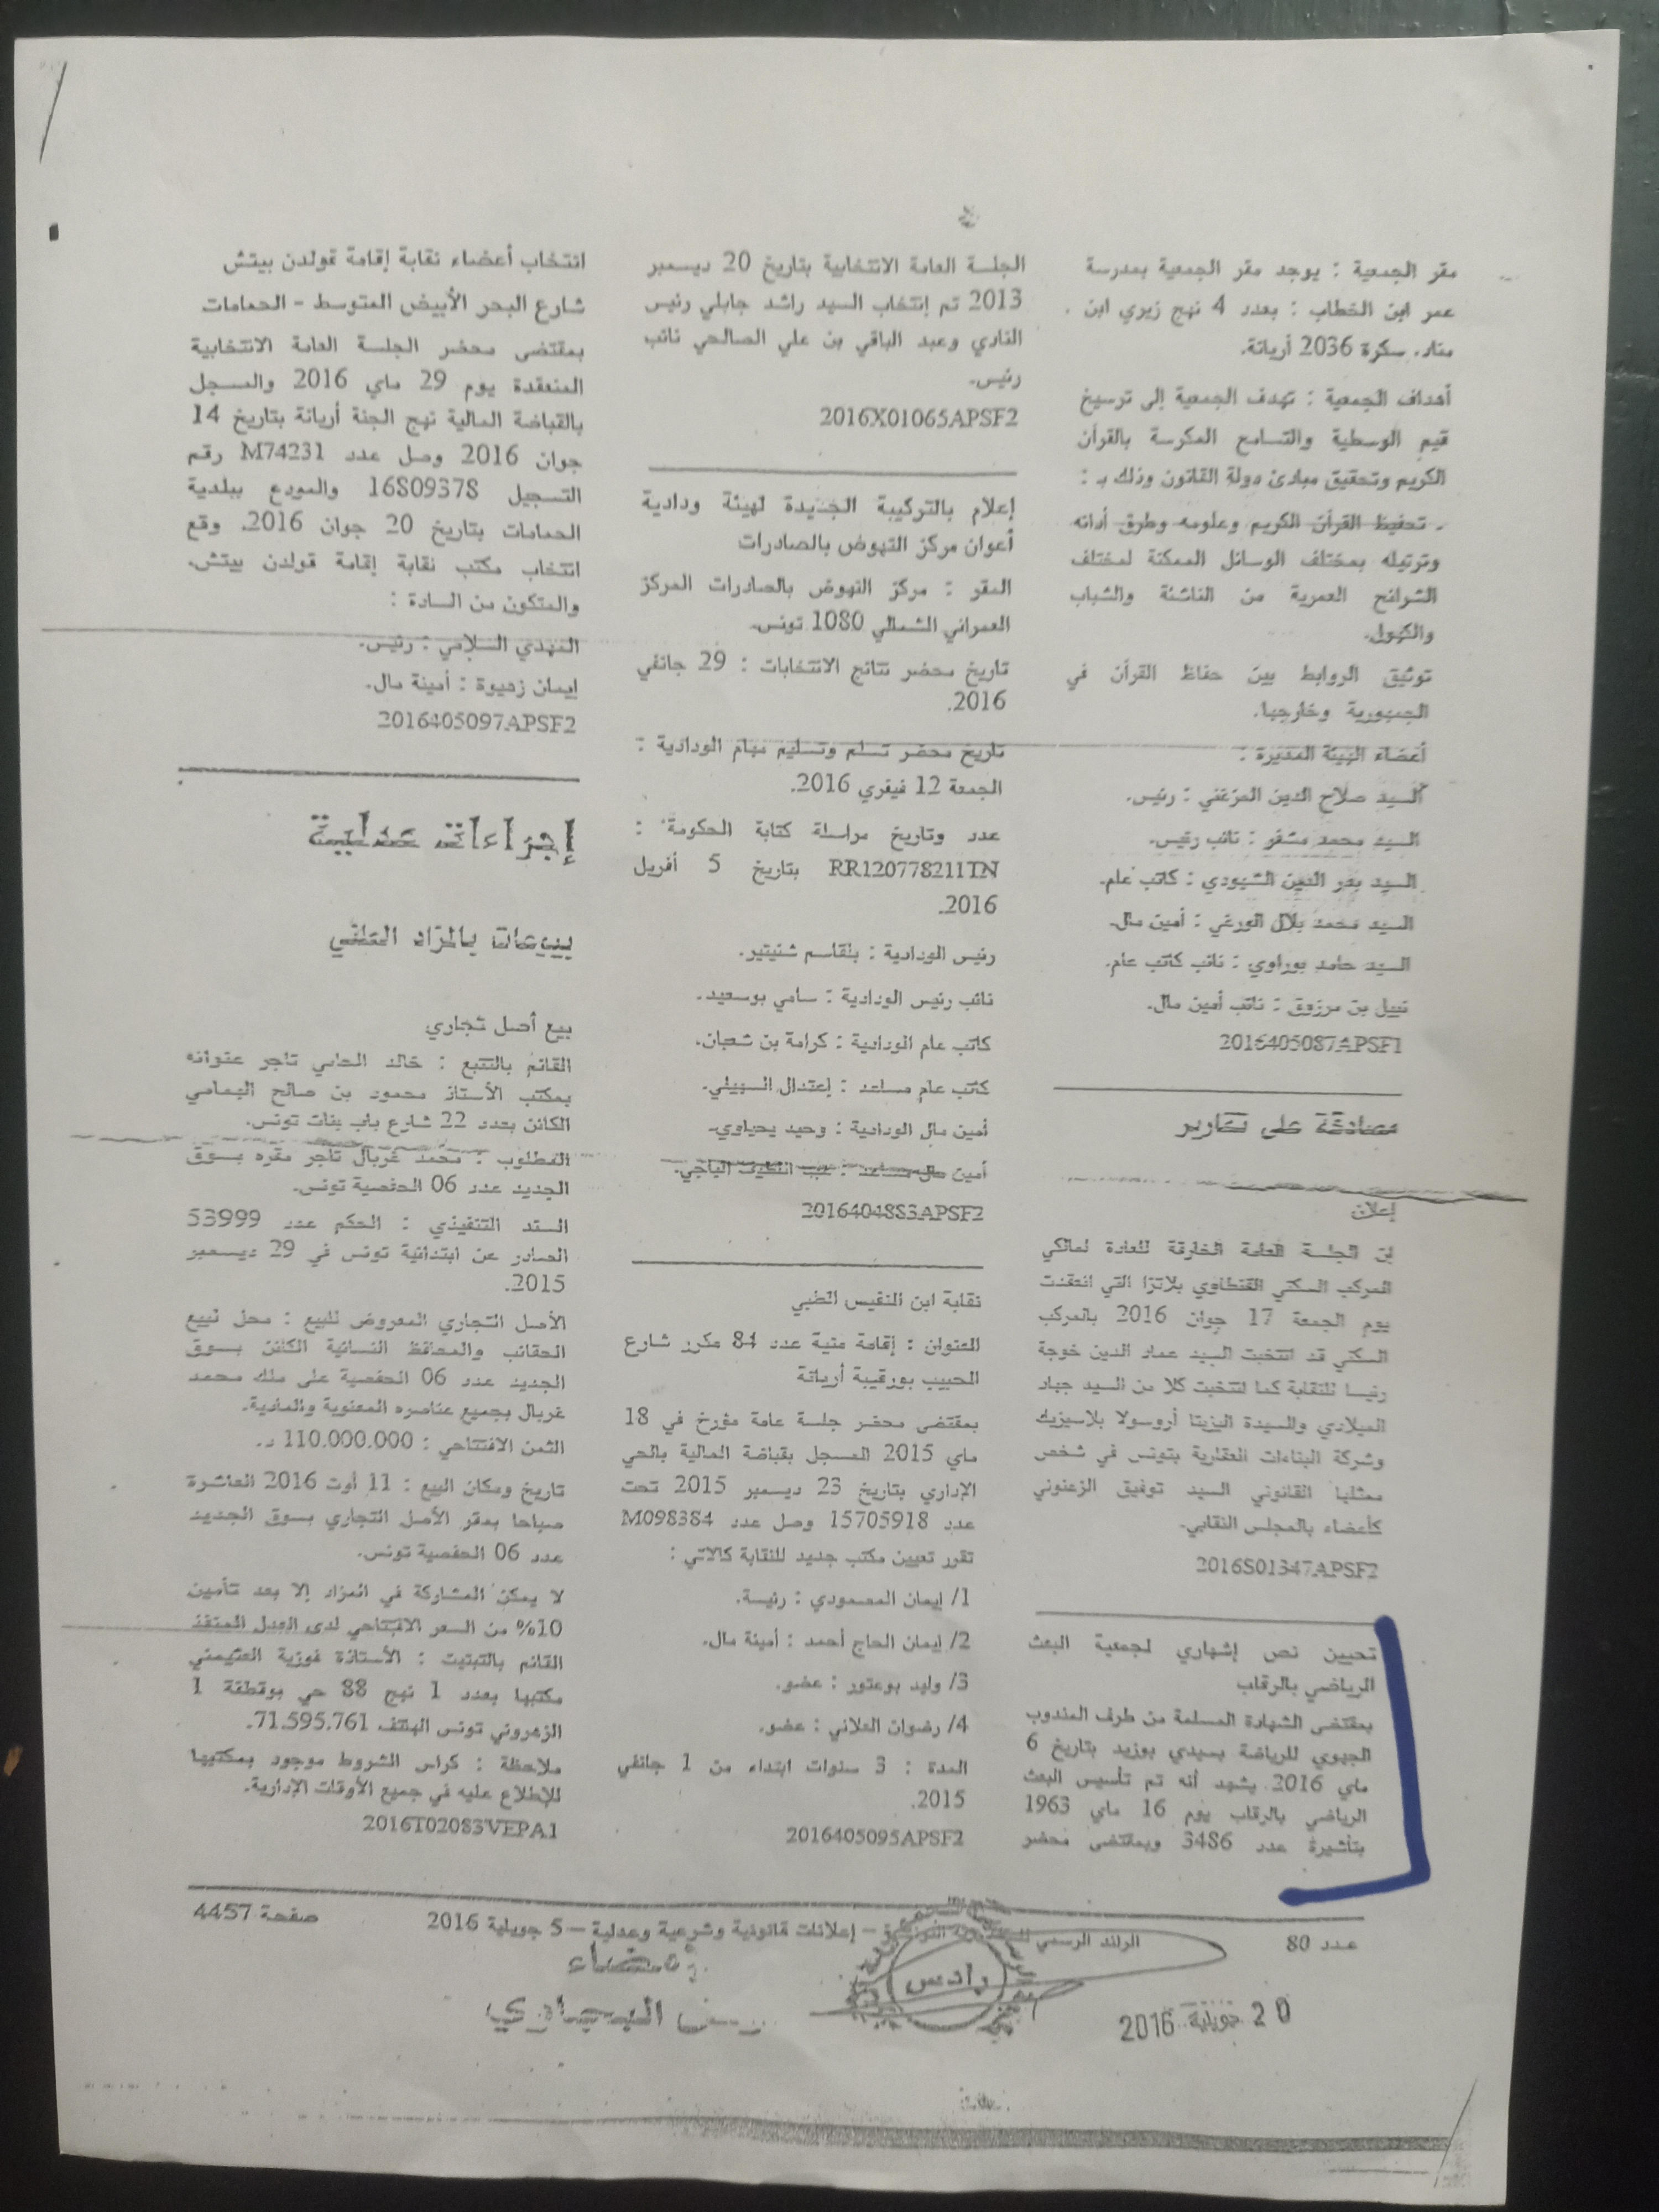 مقر الجمعية : يوجد مقر الجمعية بمدرسة
عمر ابن الخطاب : بعدد 4 نهج زيري ابن
مناد. سكرة 2036 أريانة.
أهداف الجمعية : تهدف الجمعية إلى ترسيخ
قيم الوسطية والتسامح المكرسة بالقرآن
الكريم وتحقيق مبادئ دولة القانون وذلك بـ :
ـ تحفيظ القرآن الكريم وعلومه وطرق أدائه
وترتيله بمختلف الوسائل الممكنة لمختلف
الشرائح العمرية من الناشئة والشباب
والكهول.
توثيق الروابط بين حفاظ القرآن في
الجمهورية وخارجها.
أعضاء الهيئة المديرة :
السيد صلاح الدين المزغني : رئيس.
السيد محمد مشفر : نائب رئيس.
السيد بدر الدين الشهودي : كاتب عام.
السيد محمد بلال الورغي : أمين مال.
السيد حامد بوراوي : نائب كاتب عام.
نبيل بن مرزوق : نائب أمين مال.
2016405087APSF1
مصادقة على تقارير
إعلان
إن الجلسة العامة الخارقة للعادة لمالكي
المركب السكني القنطاوي بلازا التي انعقدت
يوم الجمعة 17 جوان 2016 بالمركب
السكني قد انتخبت السيد عماد الدين خوجة
رئيسا للنقابة كما انتخبت كلا من السيد جبار
الميلادي والسيدة اليزيتا أروسولا بلاسيزيك
وشركة البناءات العقارية بتونس في شخص
ممثلها القانوني السيد توفيق الزعنوني
كأعضاء بالمجلس النقابي.
2016S01347APSF2
تحيين نص إشهاري لجمعية البعث
الرياضي بالرقاب
بمقتضى الشهادة المسلمة من طرف المندوب
الجهوي للرياضة بسيدي بوزيد بتاريخ 6
ماي 2016 يشهد أنه تم تأسيس البعث
الرياضي بالرقاب يوم 16 ماي 1963
بتأشيرة عدد 3486 وبمقتضى محضر
الجلسة العامة الانتخابية بتاريخ 20 ديسمبر
2013 تم إنتخاب السيد راشد جابلي رئيس
النادي وعبد الباقي بن علي الصالحي نائب
رئيس.
2016X01065APSF2
إعلام بالتركيبة الجديدة لهيئة ودادية
أعوان مركز النهوض بالصادرات
المقر : مركز النهوض بالصادرات المركز
العمراني الشمالي 1080 تونس.
تاريخ محضر نتائج الانتخابات : 29 جانفي
2016.
تاريخ محضر تسلم وتسليم مهام الودادية :
الجمعة 12 فيفري 2016.
عدد وتاريخ مراسلة كتابة الحكومة :
RR120778211TN بتاريخ 5 أفريل
2016.
رئيس الودادية : بلقاسم شنيتير.
نائب رئيس الودادية : سامي بوسعيد.
كاتب عام الودادية : كرامة بن شعبان.
كاتب عام مساعد : إعتدال السبيلي.
أمين مال الودادية : وحيد يحياوي.
أمين مال مساعد : عبد اللطيف الباجي.
2016404883APSF2
نقابة ابن النفيس الطبي
العنوان : إقامة منية عدد 84 مكرر شارع
الحبيب بورقيبة أريانة
بمقتضى محضر جلسة عامة مؤرخ في 18
ماي 2015 المسجل بقباضة المالية بالحي
الإداري بتاريخ 23 ديسمبر 2015 تحت
عدد 15705918 وصل عدد M098384
تقرر تعيين مكتب جديد للنقابة كالآتي :
1/ إيمان المصمودي : رئيسة.
2/ إيمان الحاج أحمد : أمينة مال.
3/ وليد بوعتور : عضو.
4/ رضوان العلاني : عضو.
المدة : 3 سنوات ابتداء من 1 جانفي
2015.
2016405095APSF2
انتخاب أعضاء نقابة إقامة قولدن بيتش
شارع البحر الأبيض المتوسط - الحمامات
بمقتضى محضر الجلسة العامة الانتخابية
المنعقدة يوم 29 ماي 2016 والمسجل
بالقباضة المالية نهج الجنة أريانة بتاريخ 14
جوان 2016 وصل عدد M74231 رقم
التسجيل 16809378 والمودع ببلدية
الحمامات بتاريخ 20 جوان 2016. وقع
انتخاب مكتب نقابة إقامة قولدن بيتش.
والمتكون من السادة :
المهدي السلامي : رئيس.
إيمان زهيوة : أمينة مال.
2016405097APSF2
إجراءات عدلية
بيوعات بالمزاد العلني
بيع أصل تجاري
القائم بالتتبع : خالد الحامي تاجر عنوانه
بمكتب الأستاذ محمود بن صالح اليمامي
الكائن بعدد 22 شارع باب بنات تونس.
المطلوب : محمد غربال تاجر مقره بسوق
الجديد عدد 06 الحفصية تونس.
السند التنفيذي : الحكم عدد 53999
الصادر عن ابتدائية تونس في 29 ديسمبر
2015.
الأصل التجاري المعروض للبيع : محل لبيع
الحقائب والمحافظ النسائية الكائن بسوق
الجديد عدد 06 الحفصية على ملك محمد
غربال بجميع عناصره المعنوية والمادية.
الثمن الافتتاحي : 110.000.000 د.
تاريخ ومكان البيع : 11 أوت 2016 العاشرة
صباحا بمقر الأصل التجاري بسوق الجديد
عدد 06 الحفصية تونس.
لا يمكن المشاركة في المزاد إلا بعد تأمين
10% من السعر الافتتاحي لدى العدل المنفذ
القائم بالتبتيت : الأستاذة فوزية العثيمني
مكتبها بعدد 1 نهج 88 حي بوقطفة 1
الزهروني تونس الهاتف 71.595.761.
ملاحظة : كراس الشروط موجود بمكتبها
للإطلاع عليه في جميع الأوقات الإدارية.
2016T02083VEPA1
عدد 80
الرائد الرسمي للجمهورية التونسية – إعلانات قانونية وشرعية وعدلية – 5 جويلية 2016
صفحة 4457
إمضاء
رادس
20 جويلية 2016